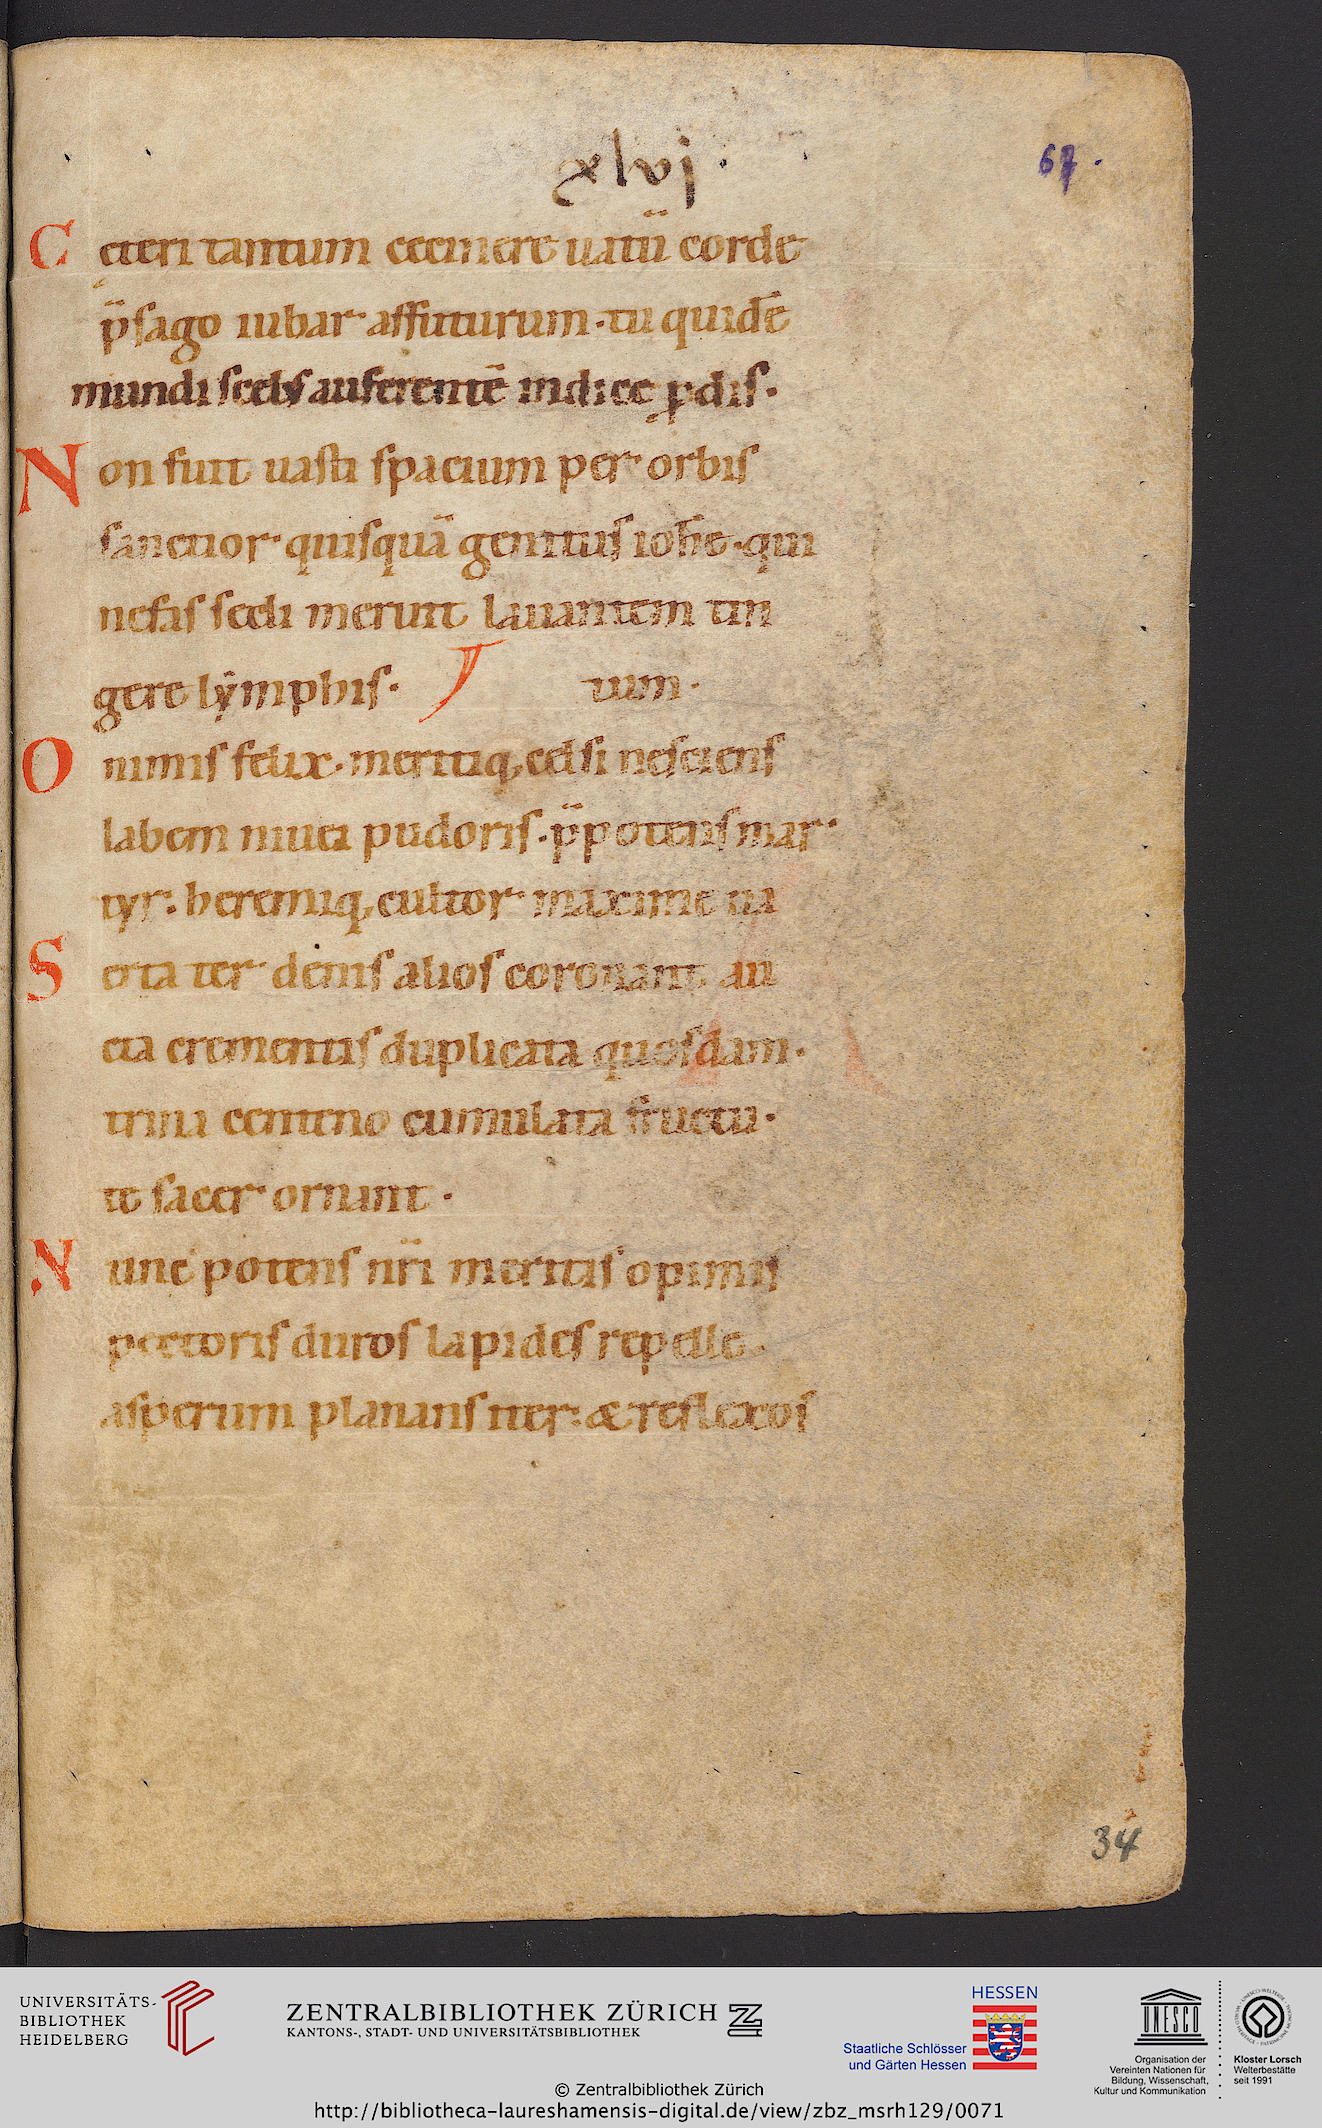 xlvj.
67.
C eteri tantum cecinere uatū corde
p̄sago iubar affuturum. tu quidē
mundi scelꝰ auferentē indice ꝓdis.
N on fuit uasti spacium per orbis
sanctior quisquā genitus ioh̄e. qui
nefas secli meruit lauantem tin
gere lẏmphis. uum.
O nimis felix. meritiq, celsi nesciens
labem niuei pudoris. p̄potens mar
tyr: heremiq, cultor maxime ua
S erta ter denis alios coronant au
cta crementis duplicata quosdam.
trina centeno cumulata fructu.
te sacer ornant.
N unc potens nr̄i meritis opimis
pectoris duros lapides repelle.
asperum planans iter: & reflexos
34
UNIVERSITÄTS-
BIBLIOTHEK
HEIDELBERG
ZENTRALBIBLIOTHEK ZÜRICH
KANTONS-, STADT- UND UNIVERSITÄTSBIBLIOTHEK
HESSEN
Staatliche Schlösser
und Gärten Hessen
UNESCO
Organisation der
Vereinten Nationen für
Bildung, Wissenschaft,
Kultur und Kommunikation
Kloster Lorsch
Welterbestätte
seit 1991
© Zentralbibliothek Zürich
http://bibliotheca-laureshamensis-digital.de/view/zbz_msrh129/0071